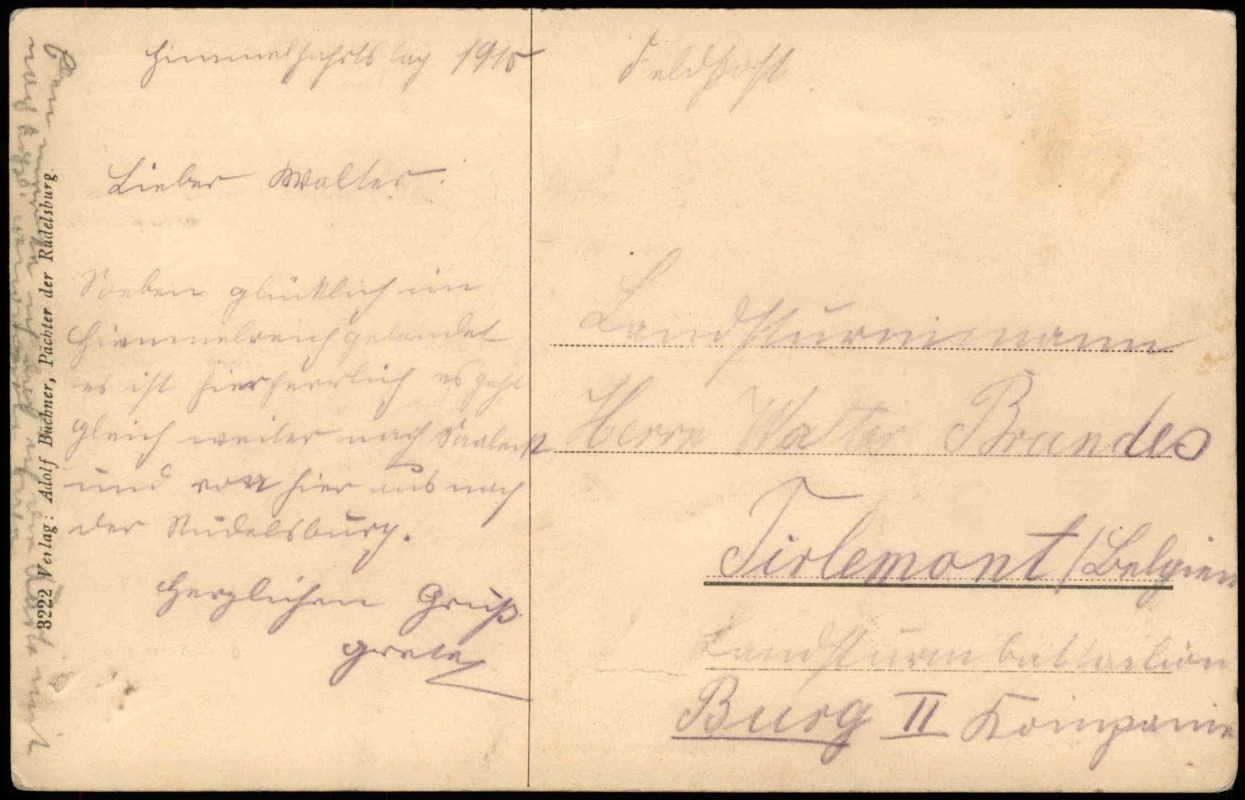 Himmelfahrtstag 1915
Lieber Walter.
Soeben glücklich im
Himmelreich gelandet
es ist hier herrlich es geht
gleich weiter nach Saaleck
und von hier aus nach
der Rudelsburg.
Herzlichen Gruß
Grete
3222 Verlag: Adolf Büchner, Pächter der Rudelsburg.
Feldpost
Landsturmmann
Herrn Walter Brandes
Tirlemont/Belgien
Landsturmbattaelion
Burg II Kompanie